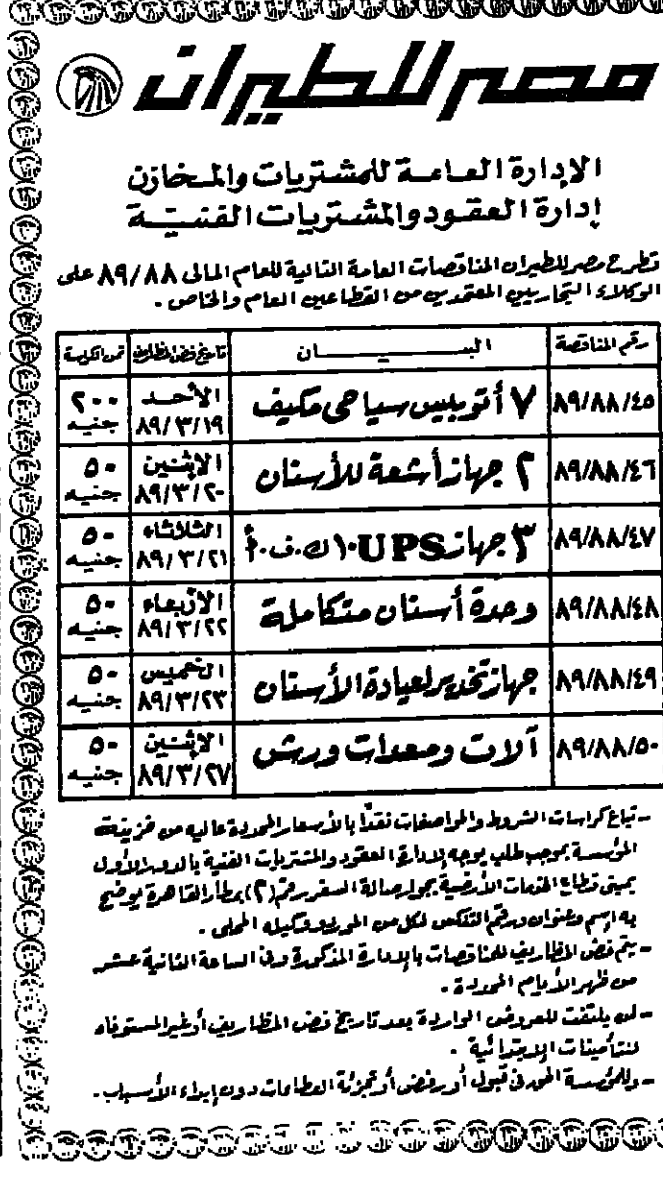 مصر للطيران
الإدارة العامة للمشتريات والمخازن
إدارة العقود والمشتريات الفنية
تطرح مصر للطيران المناقصات العامة التالية للعام المالى ٨٩/٨٨ على
الوكلاء التجاريين المعتمدين من القطاعين العام والخاص .
رقم المناقصة البيــــان تاريخ فض المظاريف ثمن الكراسة
٨٩/٨٨/٤٥ ٧ أتوبيس سياحى مكيف الأحد ٨٩/٣/١٩ ٢٠٠ جنيه
٨٩/٨٨/٤٦ ٢ جهاز أشعة للأسنان الاثنين ٨٩/٣/٢٠ ٥٠ جنيه
٨٩/٨٨/٤٧ ٣ جهاز UPS ١٠ ك.ف.أ الثلاثاء ٨٩/٣/٢١ ٥٠ جنيه
٨٩/٨٨/٤٨ وحدة أسنان متكاملة الأربعاء ٨٩/٣/٢٢ ٥٠ جنيه
٨٩/٨٨/٤٩ جهاز تخدير لعيادة الأسنان الخميس ٨٩/٣/٢٣ ٥٠ جنيه
٨٩/٨٨/٥٠ آلات ومعدات ورش الاثنين ٨٩/٣/٢٧ ٥٠ جنيه
- تباع كراسات الشروط والمواصفات نقداً بالأسعار المحددة عاليه من خزينة
المؤسسة بموجب طلب يوجه لإدارة العقود والمشتريات الفنية بالدور الأول
بمبنى قطاع الخدمات الأرضية بجوار صالة السفر رقم (٢) بمطار القاهرة يوضح
به اسم وعنوان ورقم التلكس لكل من المورد ووكيله المحلى .
- يتم فض المظاريف للمناقصات بالإدارة المذكورة فى الساعة الثانية عشر
من ظهر الأيام المحددة .
- لن يلتفت للعروض الواردة بعد تاريخ فض المظاريف أو غير المستوفاه
للتأمينات الابتدائية .
- وللمؤسسة الحق فى قبول أو رفض أو تجزئة العطاءات دون إبداء الأسباب .